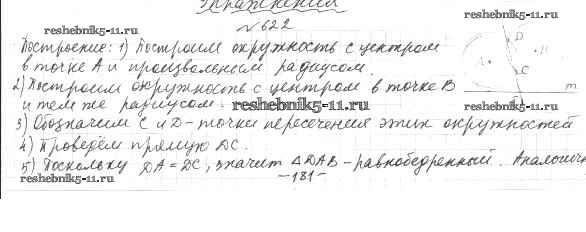 Упражнения
reshebnik5-11.ru
№622
reshebnik5-11.ru
Построение: 1) Построим окружность с центром
в точке A и произвольным радиусом.
reshebnik5-11.ru
2) Построим окружность с центром в точке B
и тем же радиусом.
reshebnik5-11.ru
3) Обозначим C и D - точки пересечения этих окружностей
4) Проведём прямую DC.
5) Поскольку DA = DC, значит △DAB - равнобедренный. Аналогичн
-181-
reshebnik5-11.ru
reshebnik5-11.ru
D
A
B
C
m